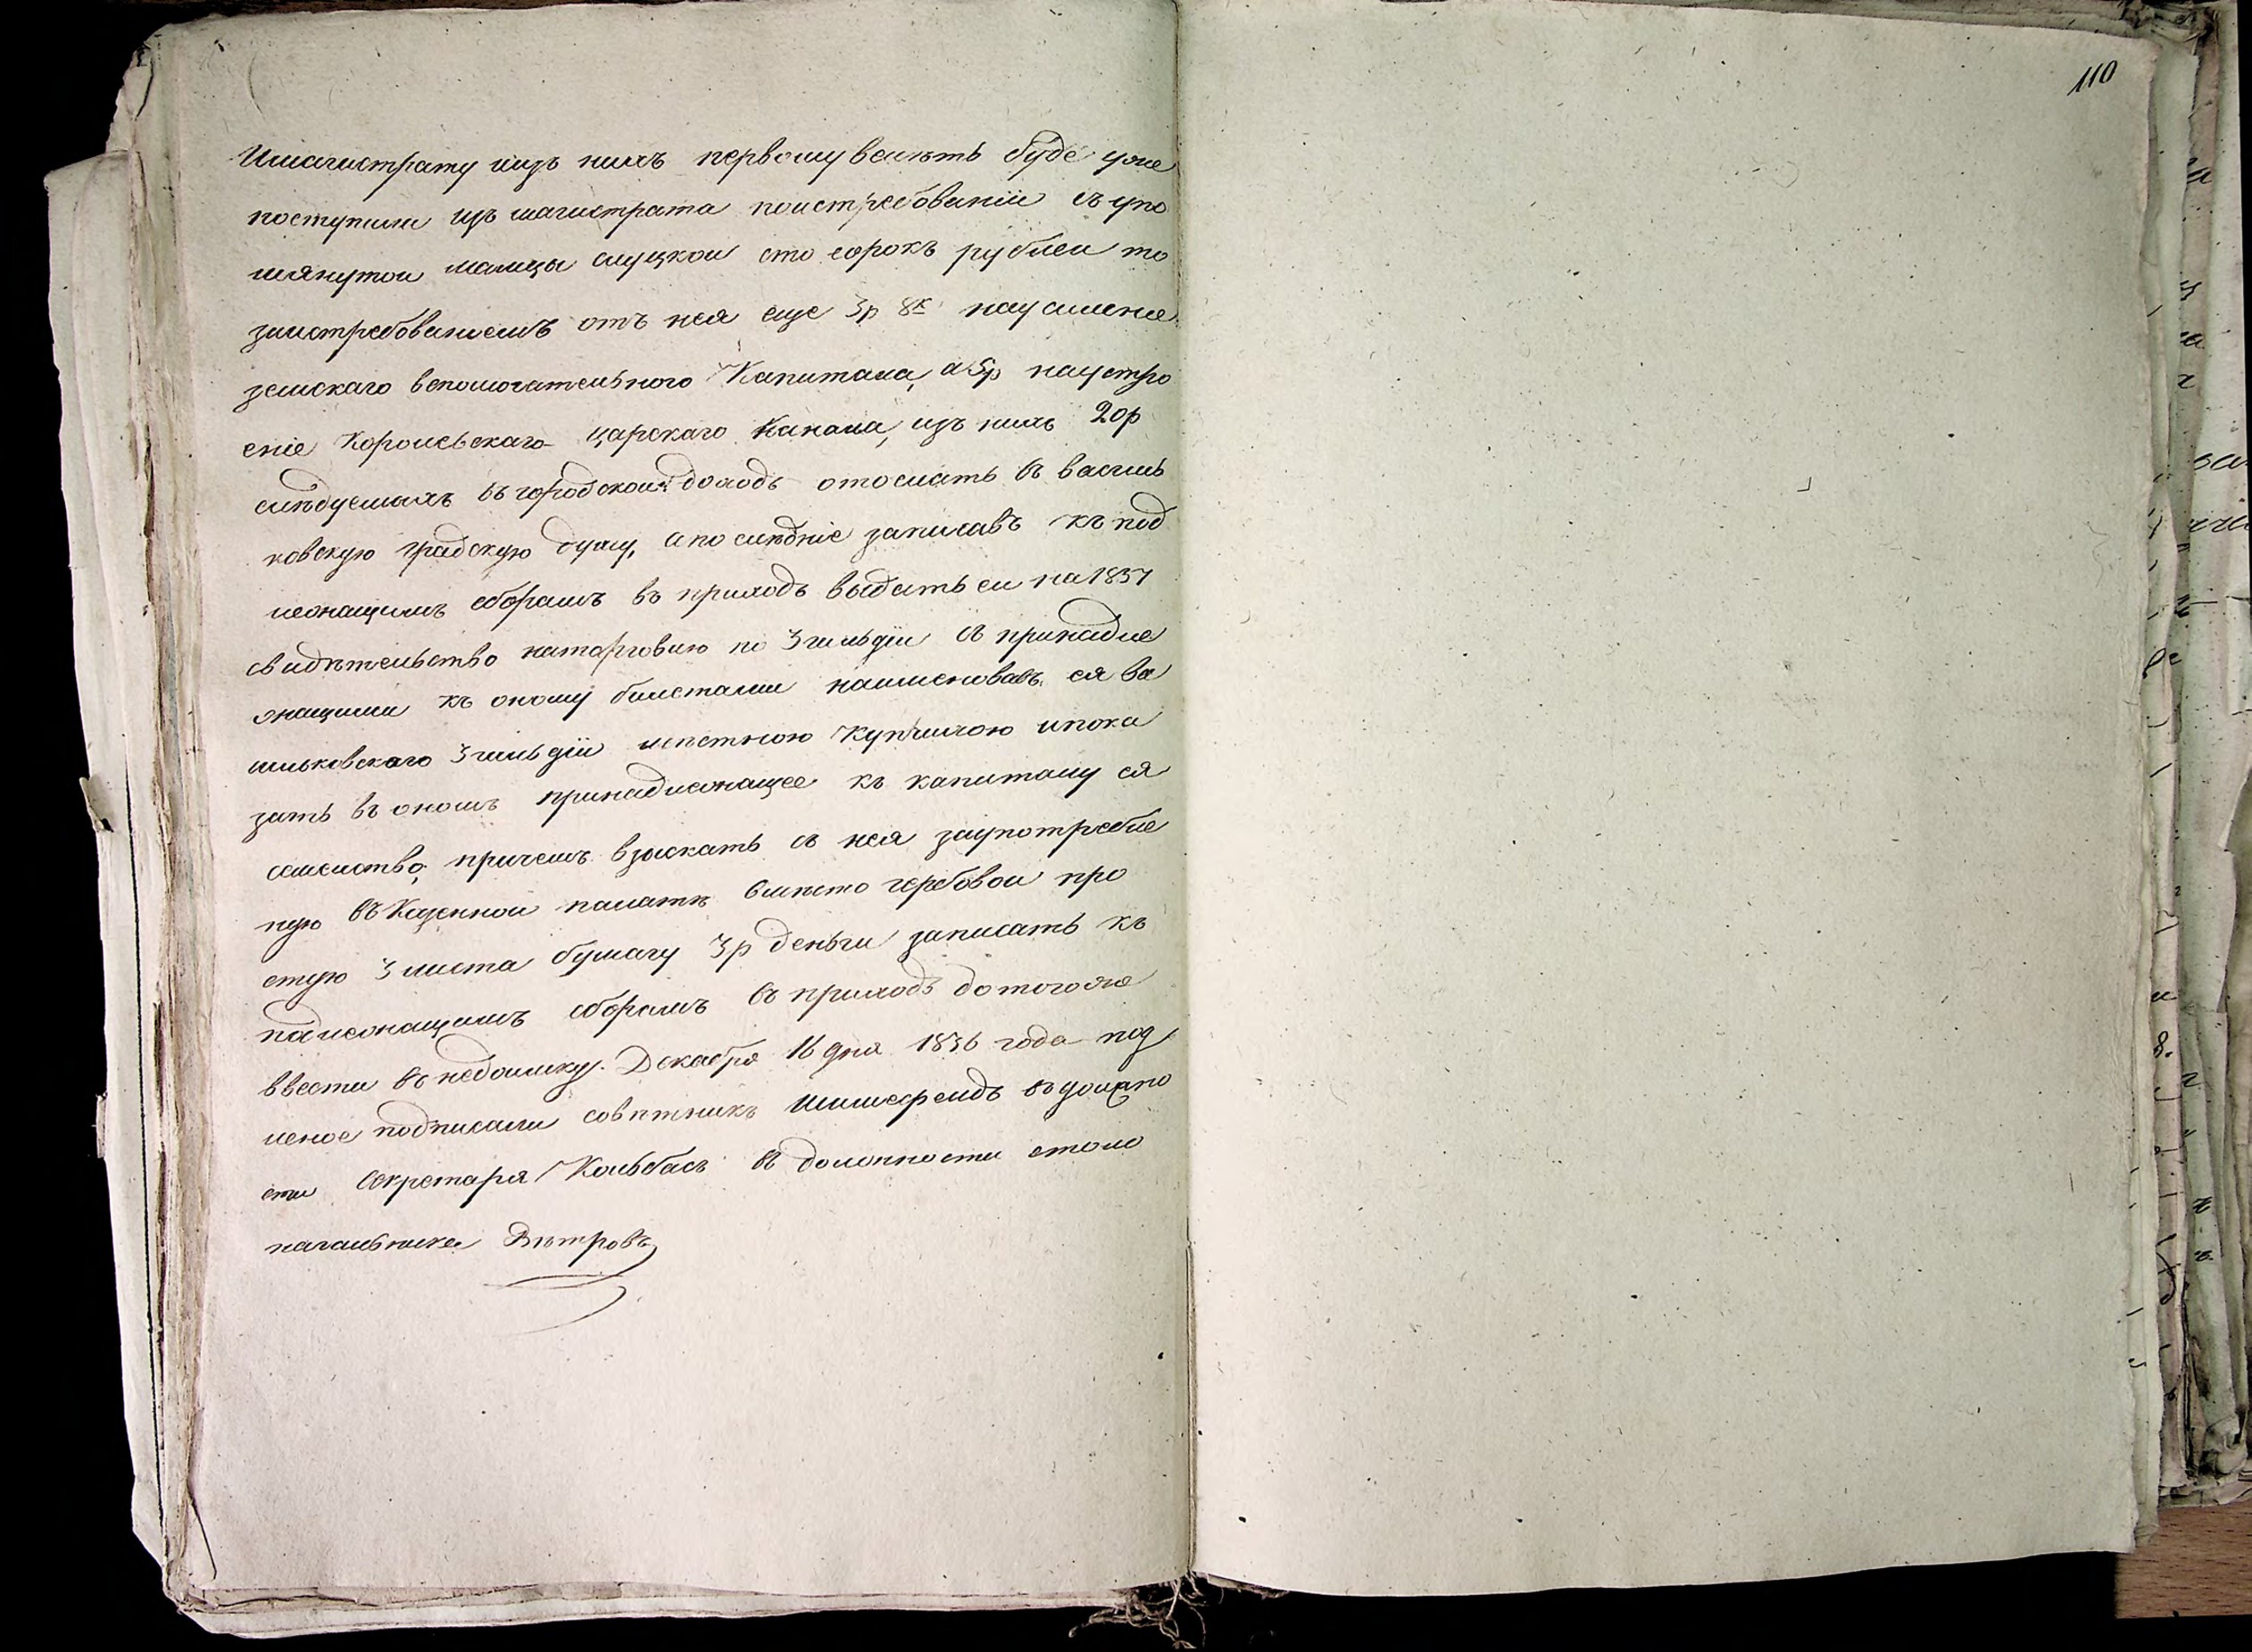 110
Имагистрату иизъ нихъ первому велѣть буде уже
поступили изъ магистрата поистребованіи съ упо
мянутой малцы слуцкой сто сорокъ рублей то
заистребованіемъ отъ нея еще 3р 8к наусиленіе
земскаго вспомогательного Капитала, а 5р наустро
еніе Королевскаго царскаго Канала, изъ нихъ 20р
слѣдуемыхъ въ городской доходъ отослать въ василь
ковскую градскую думу, апослѣдніе записавъ къ под
лежащимъ сборамъ въ приходъ выдать ей на 1837
свидѣтельство наторговлю по 3 гильдіи съ принадле
жащими къ оному билетами наименовавъ ея ва
сильковскаго 3 гильдіи мѣстною купчихою ипока
зать въ ономъ принадлежащее къ капиталу ея
семейство, причемъ взыскать съ нея заупотребле
ную въ Казенной палатѣ вмѣсто гербовой про
стую 3 листа бумагу 3р деньги записать къ
надлежащимъ сборамъ въ приходъ дотогоже
ввести въ недоимку. Декабря 16 дня 1836 года под
леное подписали совѣтникъ въ должно
сти Секретаря Кольбасъ въ должности столо
начальника Вѣтровъ